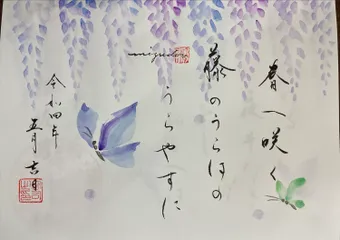 春へ咲く
藤のうらはの
うらやすに
令和四年
五月吉日